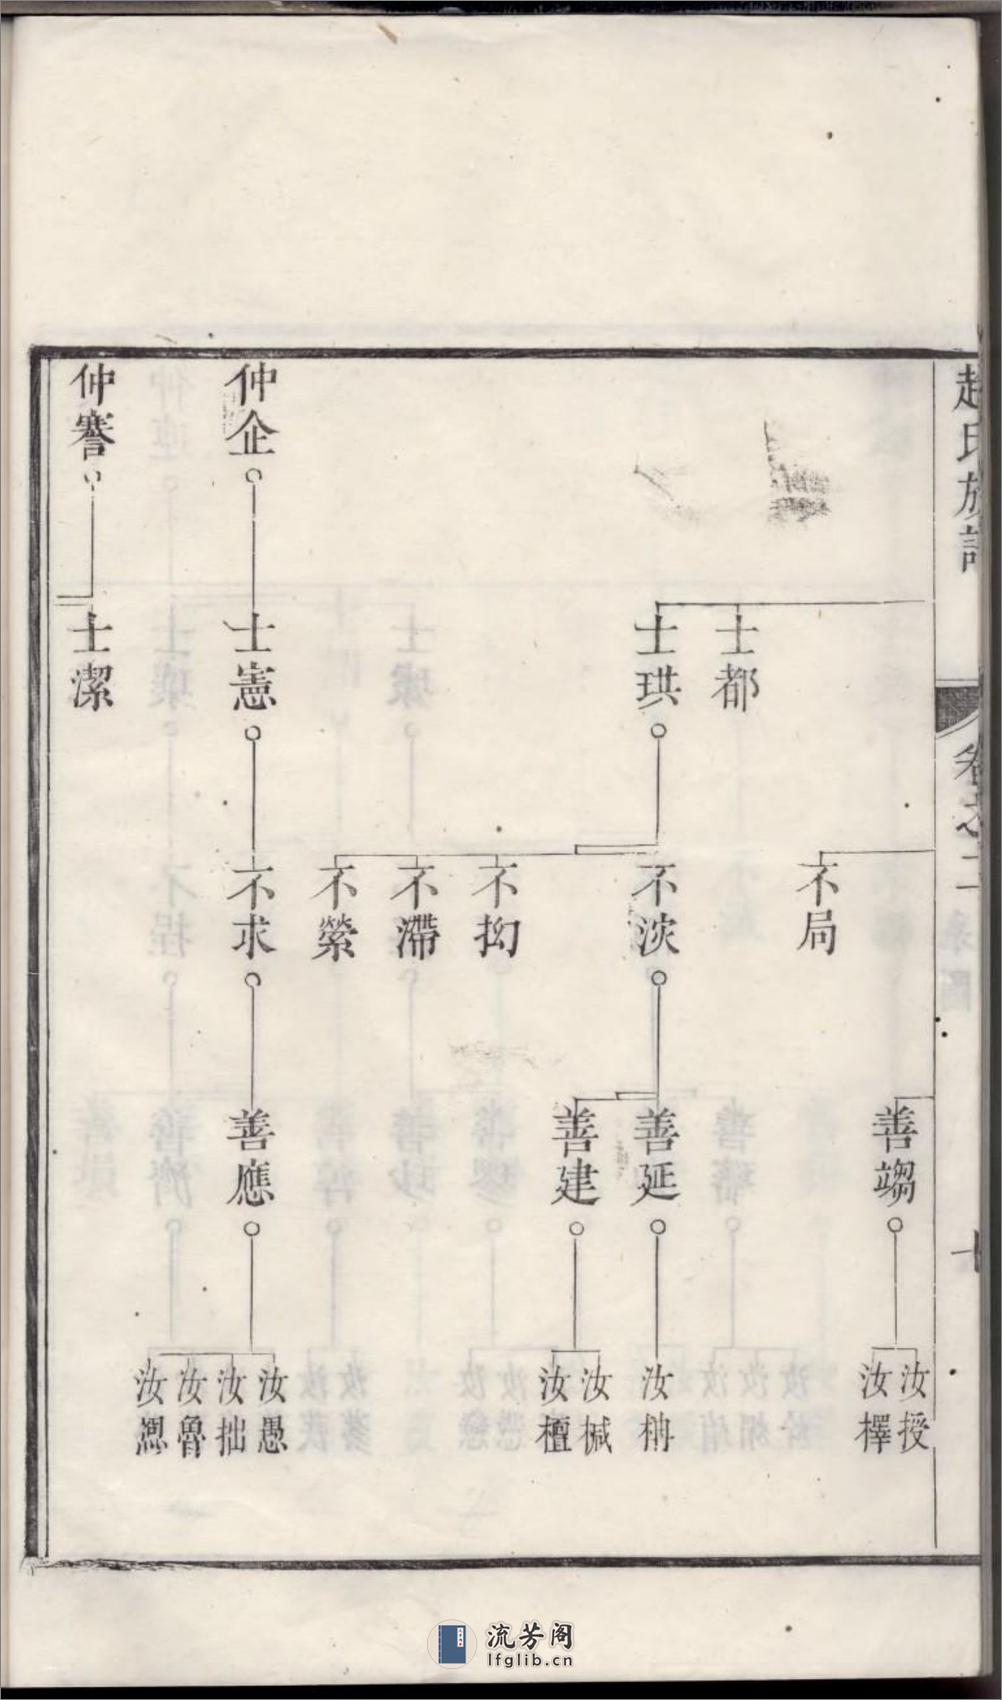 趙氏族譜
卷之二
士都
士珙
仲企
士憲
仲謇
士潔
不局
不淡
不拗
不滯
不縈
不求
善延
善建
善應
汝授
汝檡
汝枘
汝楲
汝檀
汝愚
汝拙
汝魯
流芳阁
lfglib.cn